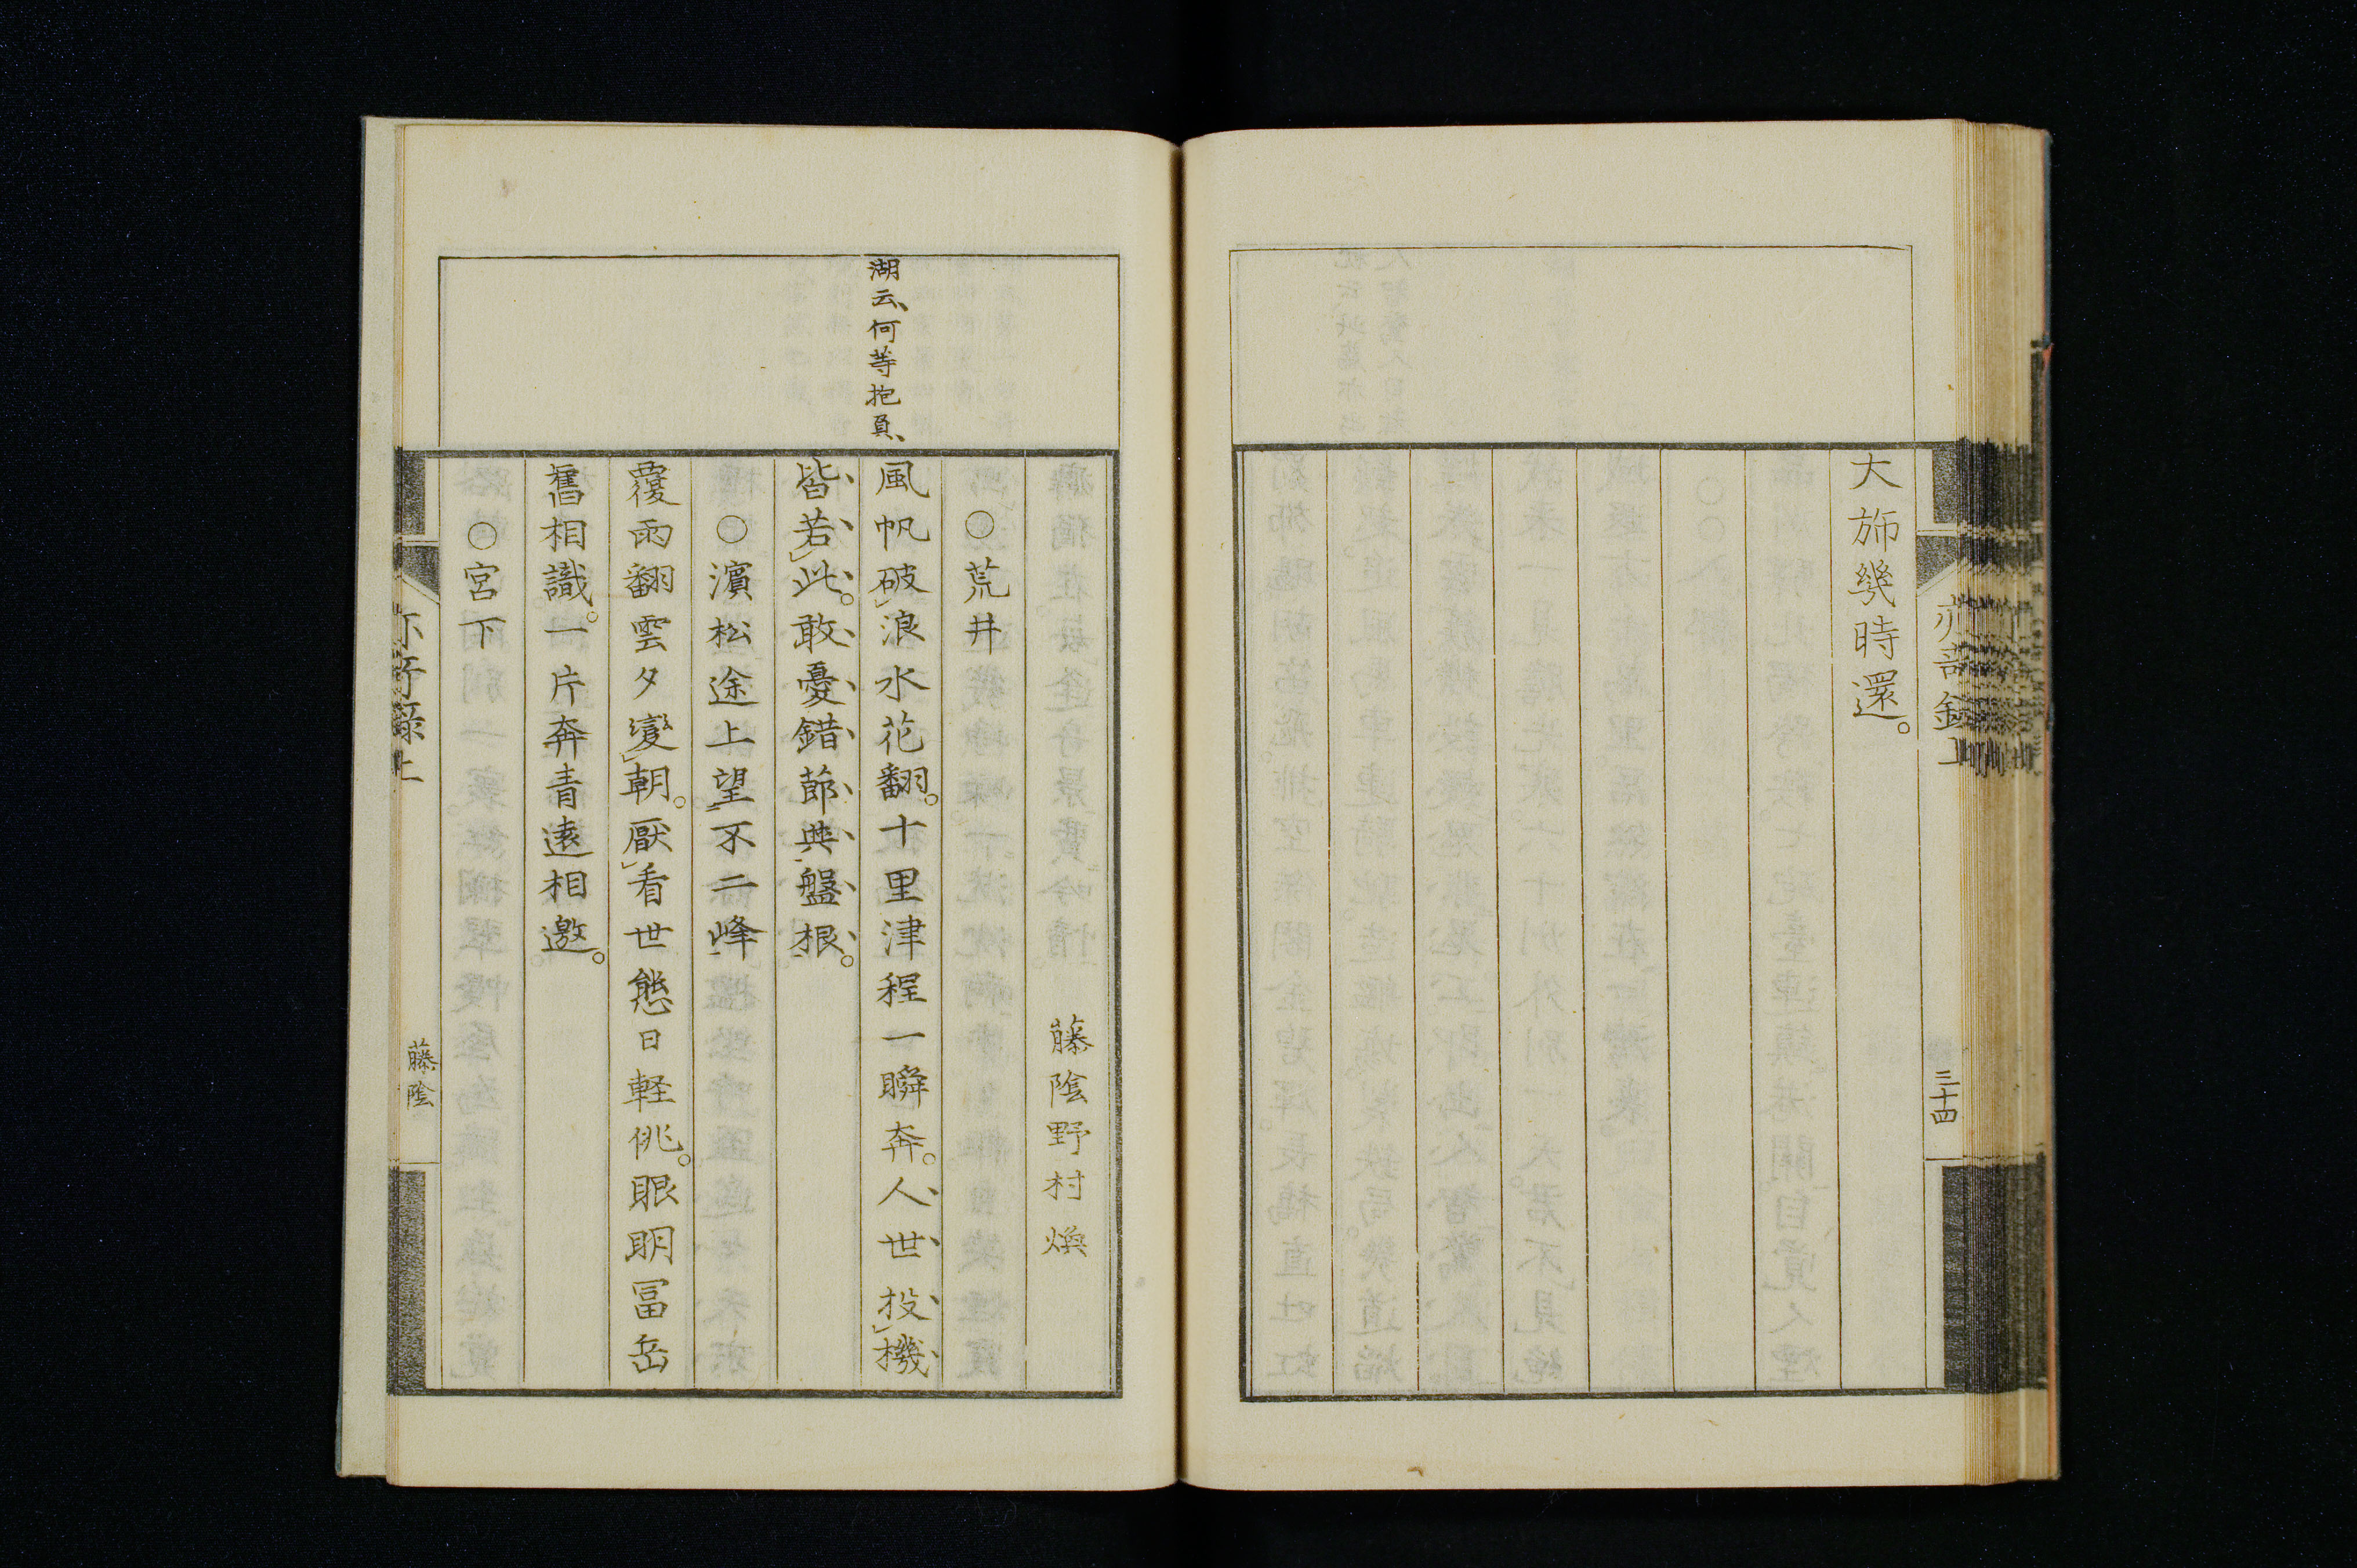 大斾幾時還。
三十四
藤陰野村煥
○荒井
湖云、何等抱負、
風帆破浪水花翻。十里津程一瞬奔。人世投機
皆若此。敢憂錯節與盤根。
○濵松途上望不二峰
覆雨翻雲夕變朝。厭看世態日軽佻。眼明冨岳
舊相識。一片奔青遠相邀。
○宮下
藤陰